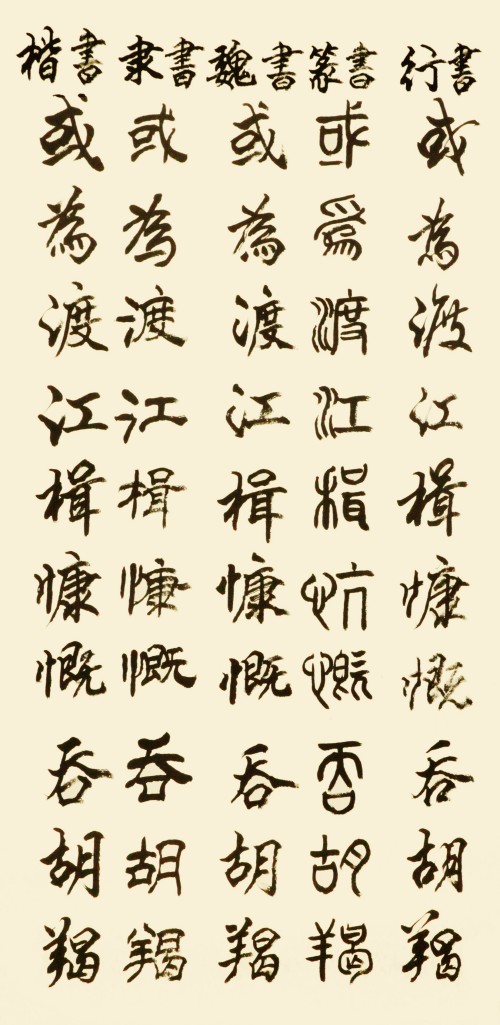 楷書 隶書 魏書 篆書 行書
或為渡江楫慷慨吞胡羯
或為渡江楫慷慨吞胡羯
或為渡江楫慷慨吞胡羯
或為渡江楫忼慨吞胡羯
或為渡江楫慷慨吞胡羯